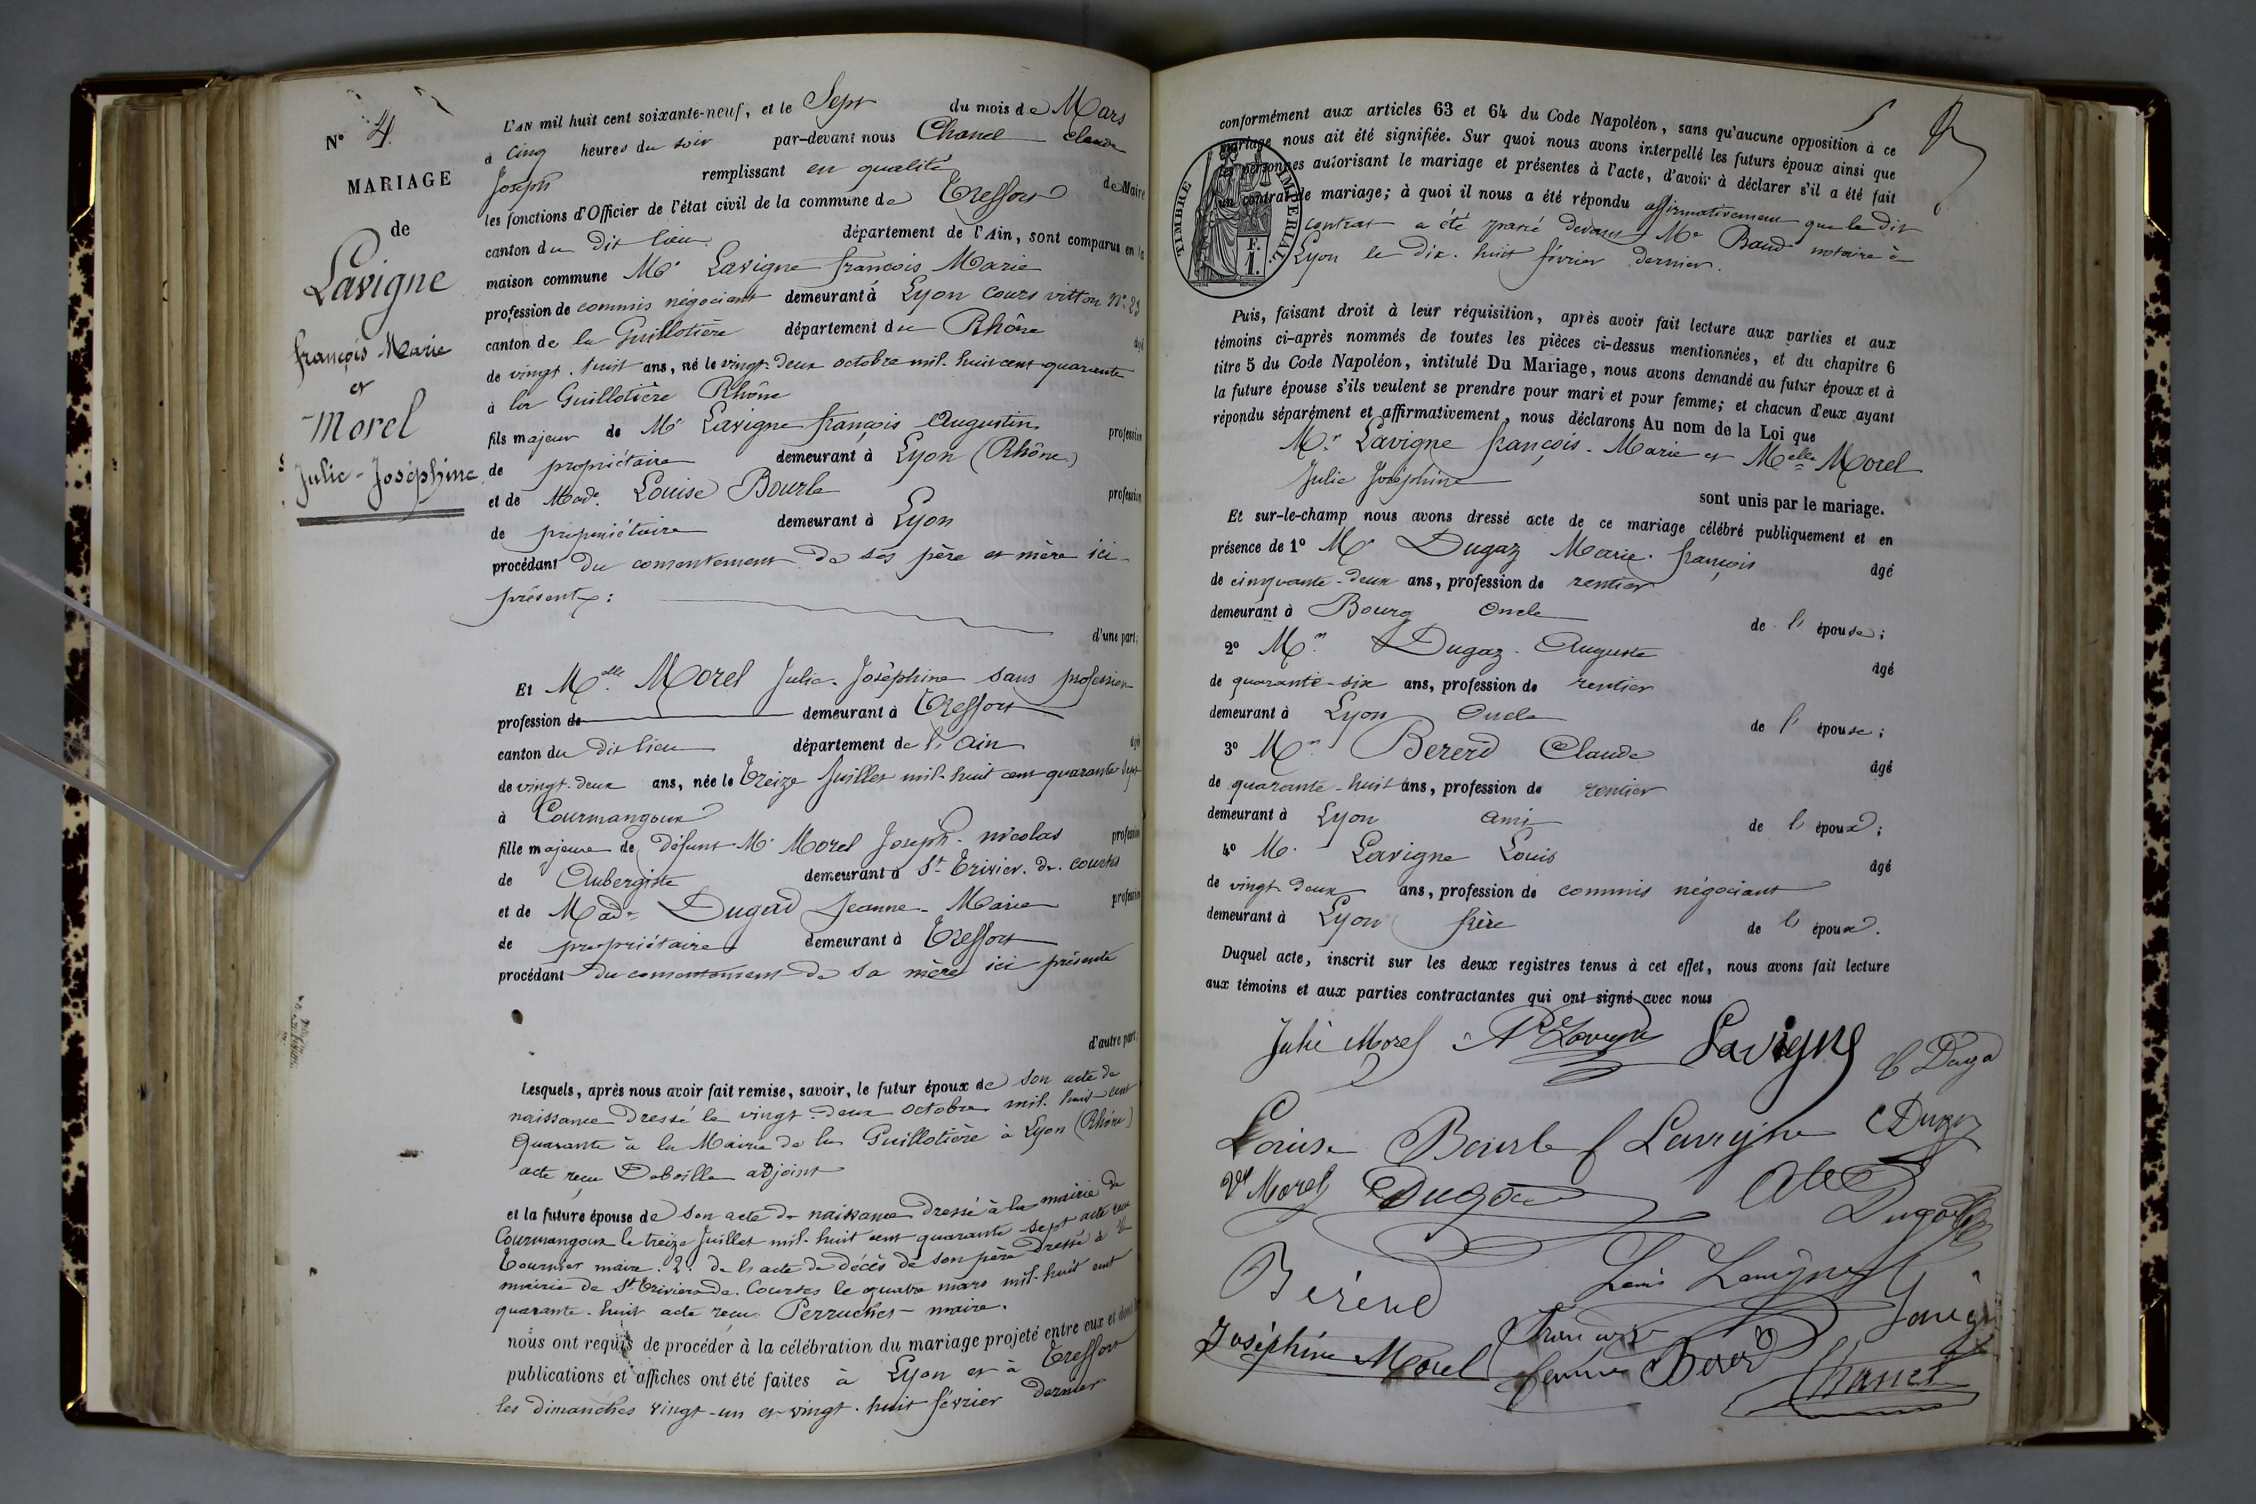 N° 4.
MARIAGE
de
Lavigne
françois Marie
et
Morel
Julie-Joséphine
L'AN mil huit cent soixante-neuf, et le Sept du mois de Mars
à cinq heures du soir par-devant nous Chanel Claude
Joseph remplissant en qualité de Maire
les fonctions d'Officier de l'état civil de la commune de Treffort
canton du dit lieu département de l'Ain, sont comparus en la
maison commune Mr Lavigne françois Marie
profession de commis négociant demeurant à Lyon cours vitton N°
canton de la Guillotière département du Rhône âgé
de vingt-huit ans, né le vingt-deux octobre mil-huit cent quarante
à la Guillotière Rhône
fils majeur de Mr Lavigne françois Augustin profession
de propriétaire demeurant à Lyon (Rhône)
et de Made. Louise Bourle profession
de propriétaire demeurant à Lyon
procédant du consentement de ses père et mère ici
présents :
d'une part;
Et Melle Morel Julie-Joséphine sans profession
profession de demeurant à Treffort
canton du dit lieu département de l'Ain âgée
de vingt-deux ans, née le treize Juillet mil-huit cent quarante sept
à Courmangoux
fille majeure de défunt Mr Morel Joseph-nicolas profession
de Aubergiste demeurant à St Trivier-de-courtes
et de Made Dugad Jeanne-Marie profession
de propriétaire demeurant à Treffort
procédant du consentement de sa mère ici présente
d'autre part;
Lesquels, après nous avoir fait remise, savoir, le futur époux de son acte de
naissance dressé le vingt-deux octobre mil-huit-cent
Quarante à la Mairie de la Guillotière à Lyon (Rhône)
acte reçu adjoint
et la future épouse de son acte de naissance dressé à la mairie de
Courmangoux le treize Juillet mil-huit cent quarante sept acte reçu
Tournier maire. 2° de l'acte de décès de son père dressé à la
mairie de St Trivier-de-Courtes le quatre mars mil-huit cent
quarante-huit acte reçu Perruches maire.
nous ont requis de procéder à la célébration du mariage projeté entre eux et dont les
publications et affiches ont été faites à Lyon et à Treffort
les dimanches vingt-un et vingt-huit février dernier
5
conformément aux articles 63 et 64 du Code Napoléon, sans qu'aucune opposition à ce
mariage nous ait été signifiée. Sur quoi nous avons interpellé les futurs époux ainsi que
les personnes autorisant le mariage et présentes à l'acte, d'avoir à déclarer s'il a été fait
un contrat de mariage; à quoi il nous a été répondu affirmativement que le dit
contrat a été passé devant Me Baud notaire à
Lyon le dix-huit février dernier.
TIMBRE IMPÉRIAL.
F.
1.
Puis, faisant droit à leur réquisition, après avoir fait lecture aux parties et aux
témoins ci-après nommés de toutes les pièces ci-dessus mentionnées, et du chapitre 6
titre 5 du Code Napoléon, intitulé Du Mariage, nous avons demandé au futur époux et à
la future épouse s'ils veulent se prendre pour mari et pour femme; et chacun d'eux ayant
répondu séparément et affirmativement, nous déclarons Au nom de la Loi que
Mr Lavigne françois-Marie et Melle Morel
Julie Joséphine
sont unis par le mariage.
Et sur-le-champ nous avons dressé acte de ce mariage célébré publiquement et en
présence de 1° Mr Dugaz Marie-françois âgé
de cinquante-deux ans, profession de rentier
demeurant à Bourg oncle de l'épouse;
2° Mr Dugaz Auguste âgé
de quarante-six ans, profession de rentier
demeurant à Lyon oncle de l'épouse;
3° Mr Bererd Claude âgé
de quarante-huit ans, profession de rentier
demeurant à Lyon ami de l'époux;
4° Mr Lavigne Louis âgé
de vingt-deux ans, profession de commis négociant
demeurant à Lyon frère de l'époux.
Duquel acte, inscrit sur les deux registres tenus à cet effet, nous avons fait lecture
aux témoins et aux parties contractantes qui ont signé avec nous
Julie Morel Lavigne Lavigne
Louise Bourle f Lavigne Dugaz
Ve Morel Dugad
Bérerd Louis Lavigne
Joséphine Morel femme Bererd Chanel